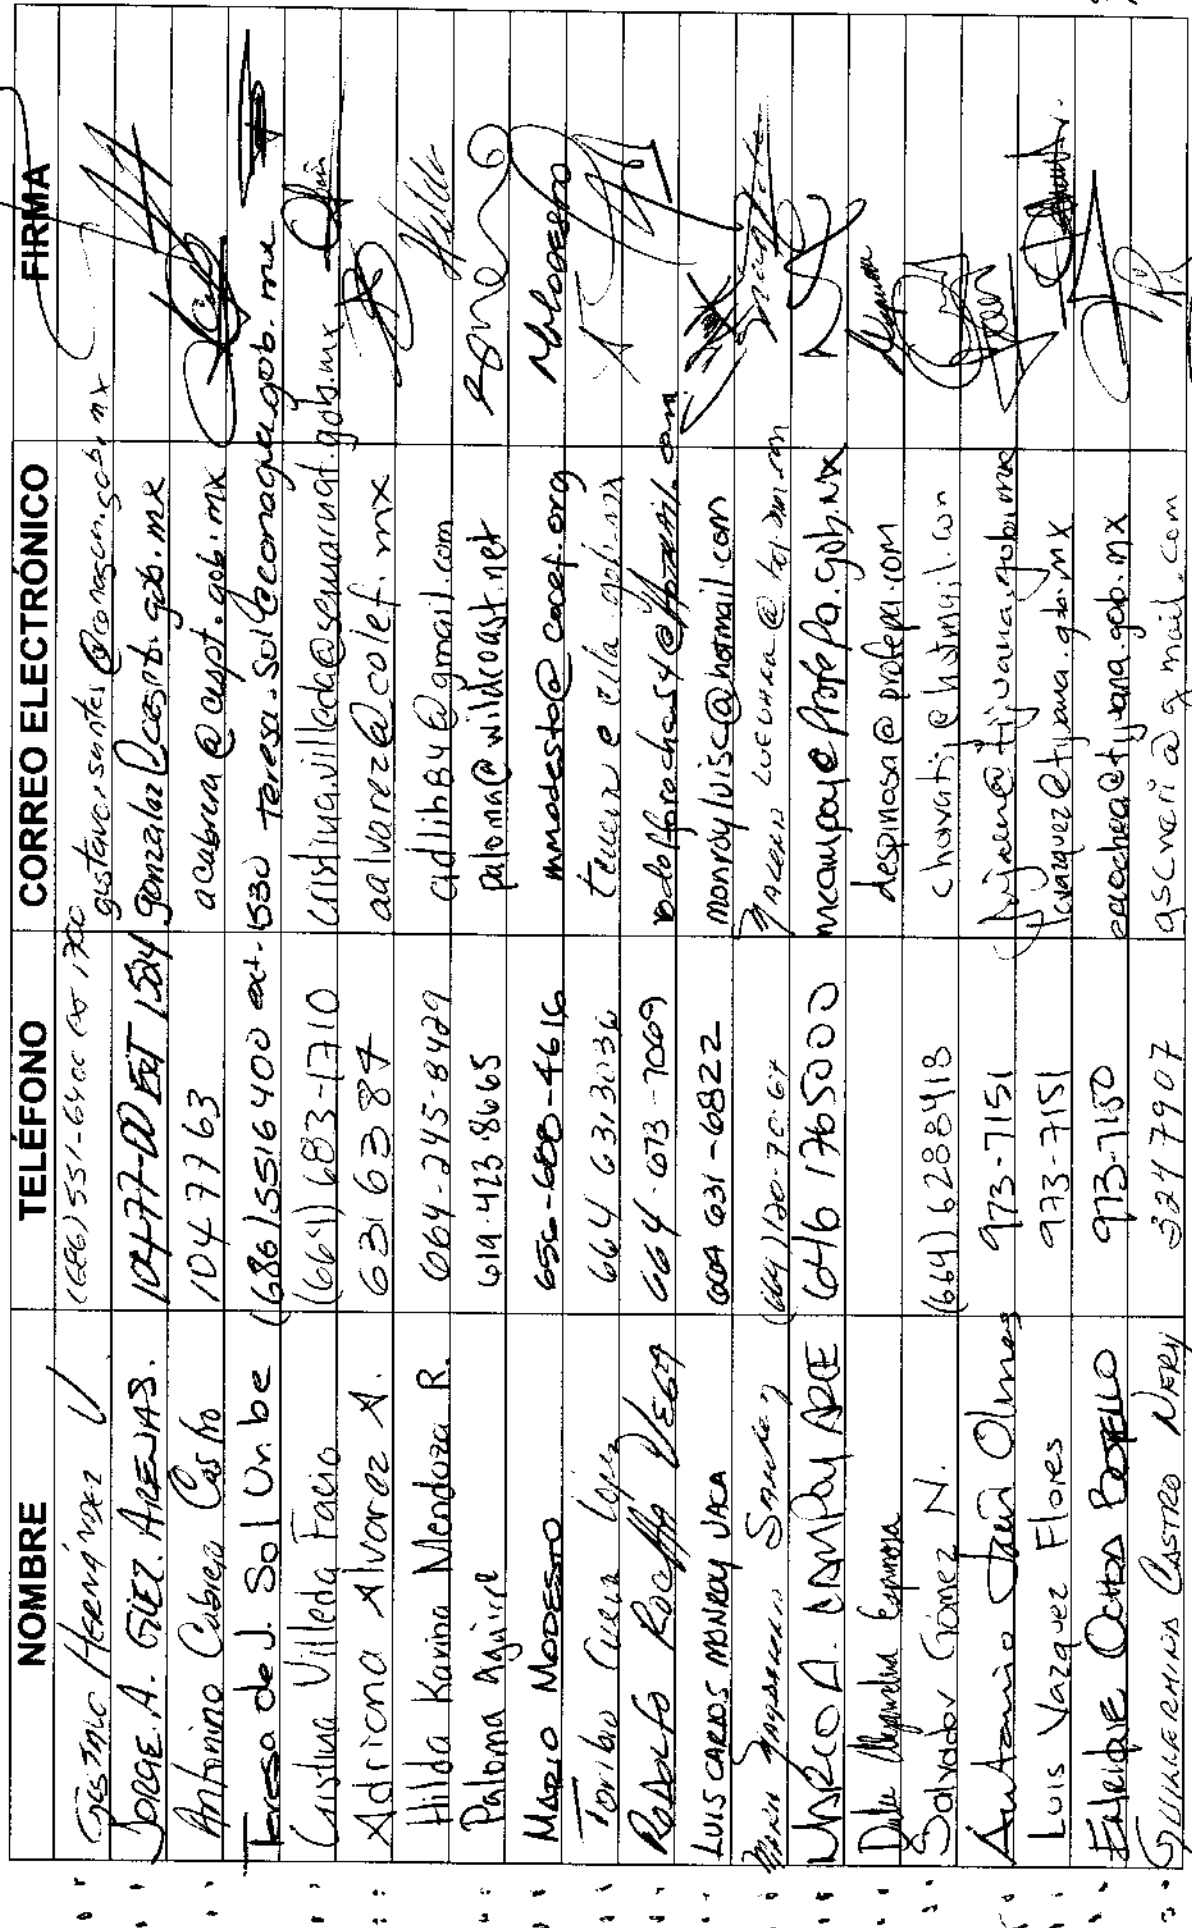 NOMBRE TELÉFONO CORREO ELECTRÓNICO FIRMA
GUSTAVO HERNÁNDEZ V (686) 551-6400 ext 1700 gustavo.santes@conagua.gob.mx
JORGE. A. GLEZ. ARENAS. 104-77-00 EXT 1524 jgonzalaz@cespt.gob.mx
Antonino Cabrera Castro 1047763 acabrera@cespt.gob.mx
Teresa de J. Sol Uribe (686)5516400 ext. 1530 teresa.sol@conagua.gob.mx
Cristina Villeda Facio (664) 683-1710 cristina.villeda@semarnat.gob.mx
Adriana Alvarez A. 6316387 aalvarez@colef.mx
Hilda Karina Mendoza R. 664-245-8429 adlih84@gmail.com Hilda
Paloma Aguirre 619.423.8665 paloma@wildcoast.net
MARIO MODESTO 656-688-4616 mmodesto@cocef.org MModesto
Toribio Cueva López 664 6313036
RODOLFO ROCHA VEGA 664-673-7069 rodolforocha54@hotmail.com
LUIS CARLOS MONROY JACA 664 631-6822 monroyluisc@hotmail.com
María Magdaleno Sanchez (664)120-70.64
MARCO A. CAMPOY ARCE 646 1765000 mcampoy@profepa.gob.mx
Espinosa despinosa@profepa.com
Salvador Gómez N. (664) 6288418 chavatij@hotmail.com
Antonio Olmos 973-7151
Luis Vazquez Flores 973-7151 lvazquez@tijuana.gob.mx
ENRIQUE OCHOA BOTELLO 973-7150 eaochoa@tijuana.gob.mx
GUILLERMINA CASTRO NERY 3247907 gscneri@gmail.com